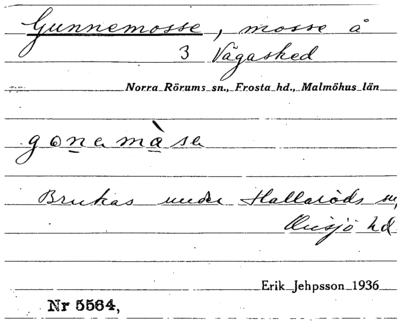 Gunnemosse, mosse å
3 Vägasked
Norra Rörums sn., Frosta hd., Malmöhus län
gonemàsa
Brukas under Hallaröds sn,
Onsjö hd
Erik Jehpsson 1936
Nr 5564,